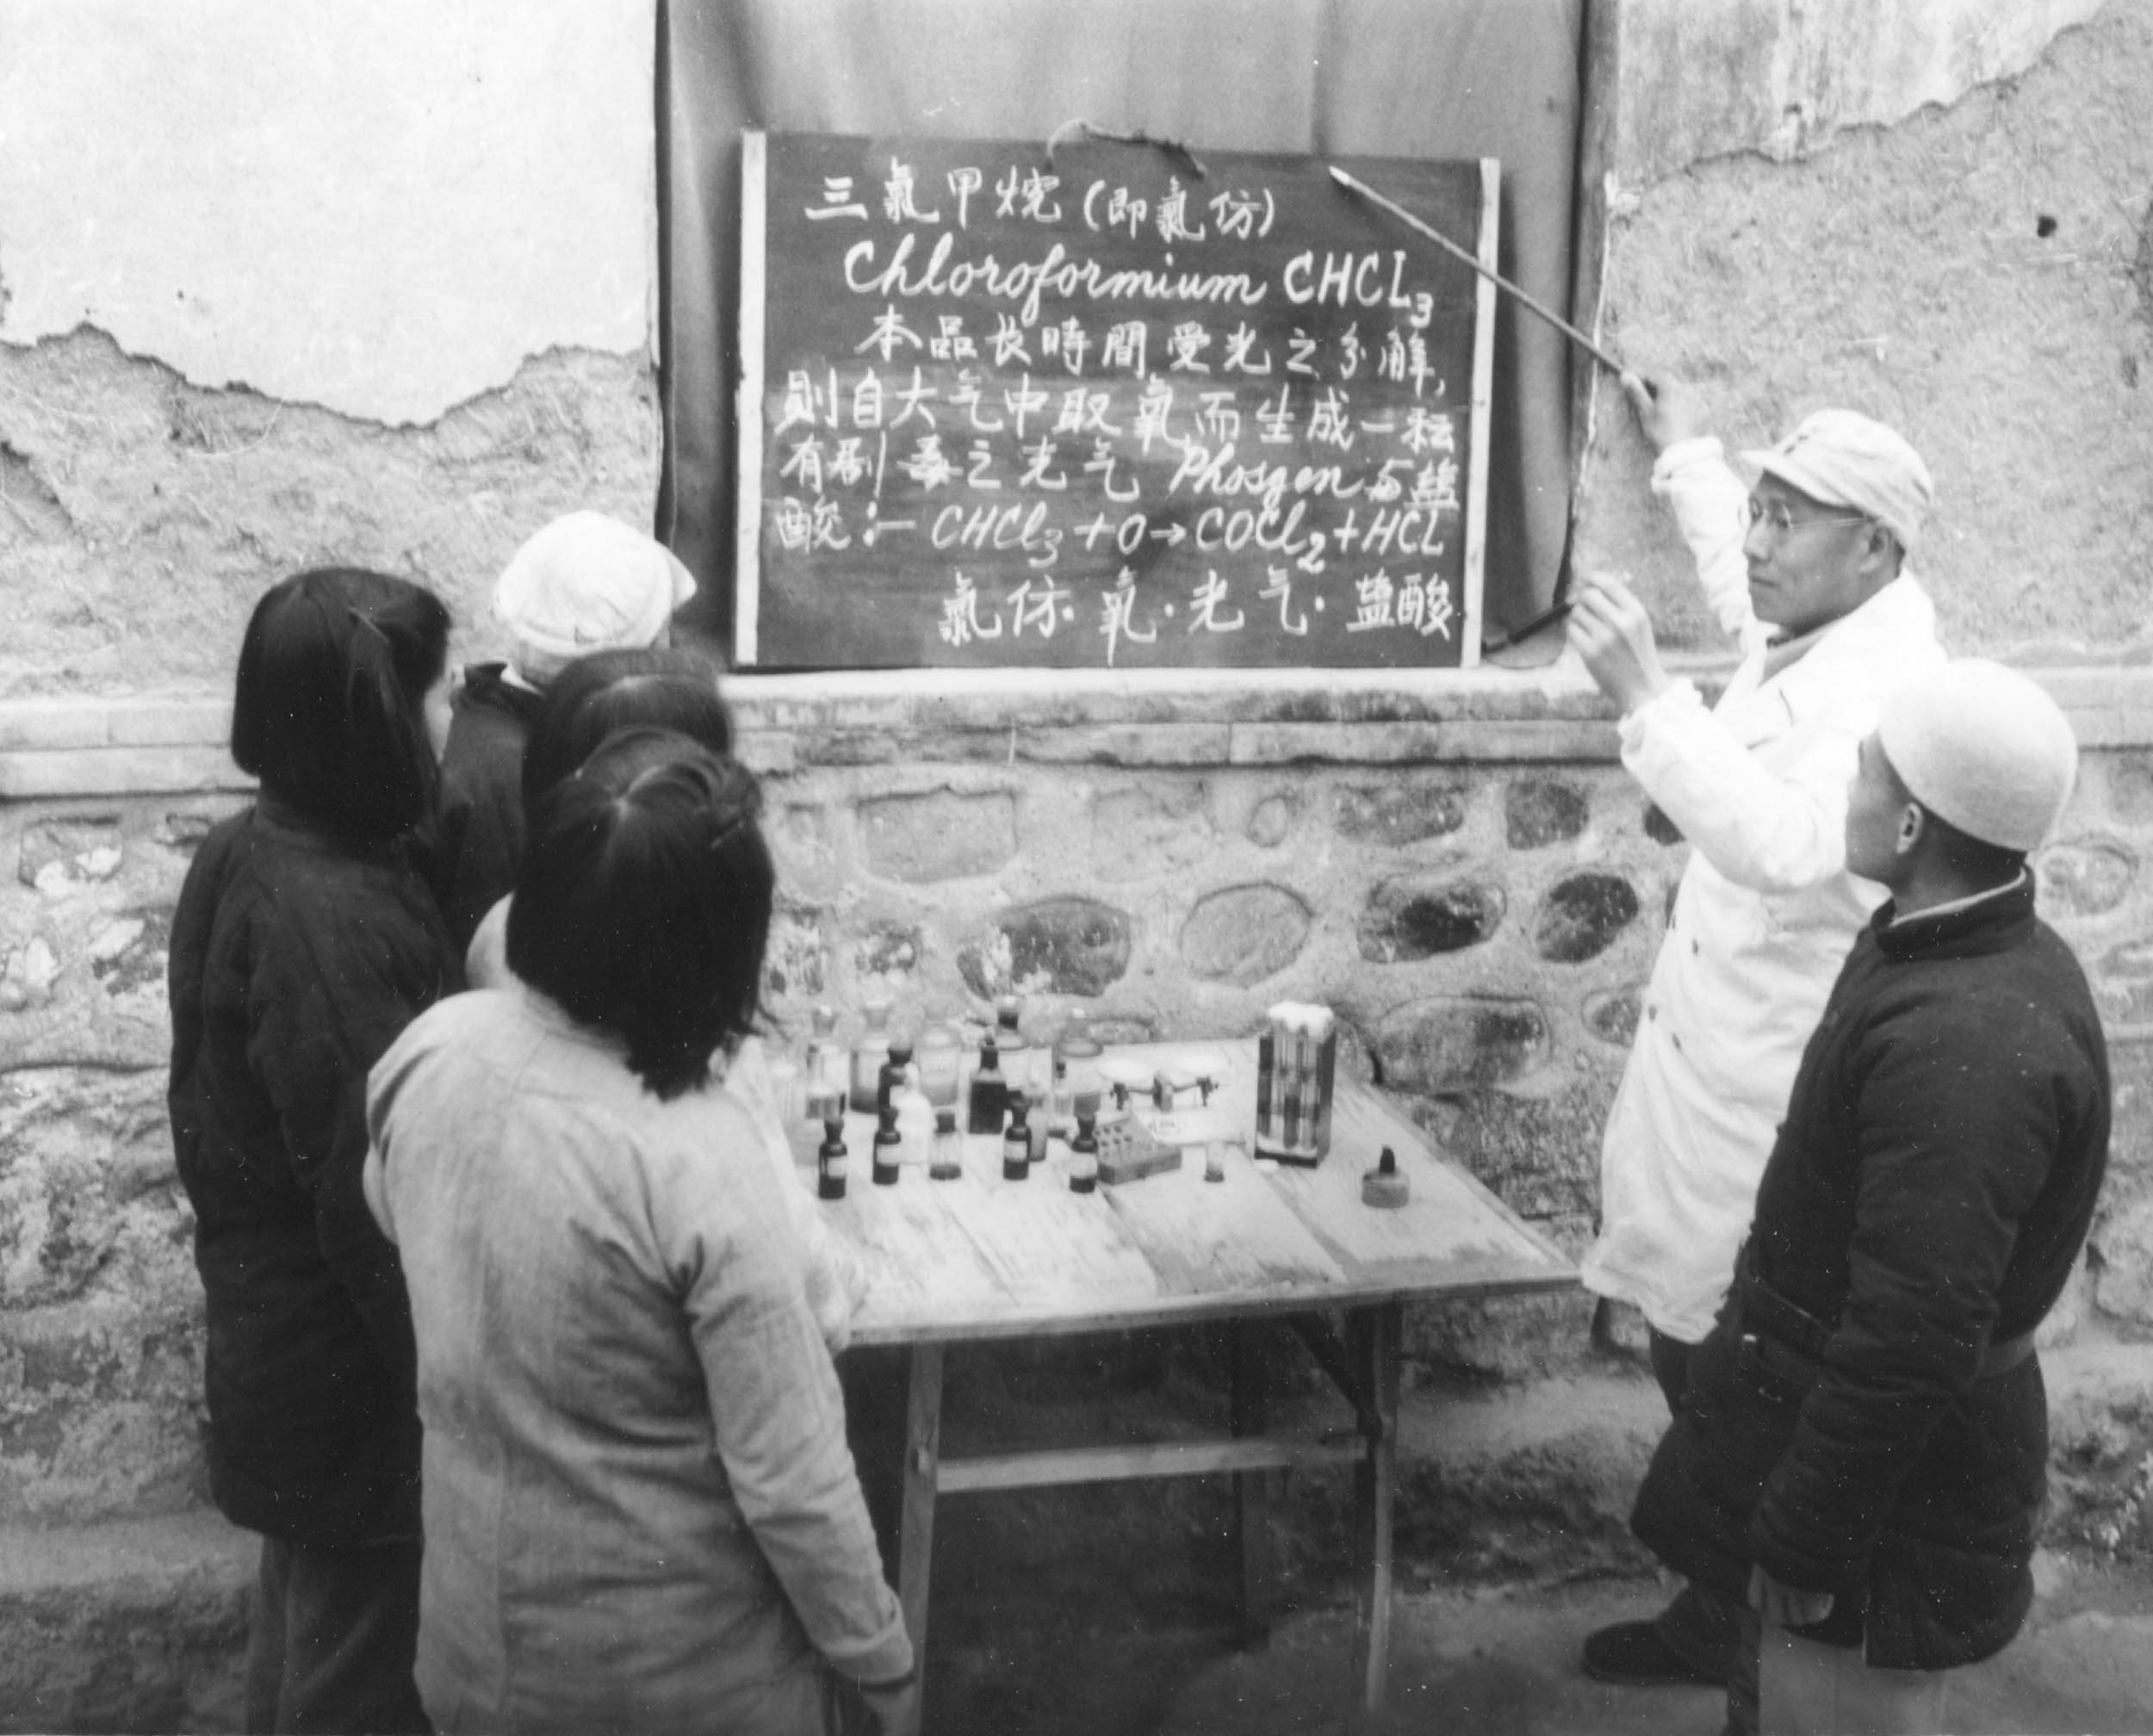 三氯甲烷(即氯仿)
Chloroformium CHCL₃
本品长時間受光之分解,
則自大气中取氧而生成一种
有剧毒之光气 Phosgen 与盐
酸:— CHCl₃+O→COCl₂+HCL
氯仿·氧·光气·盐酸